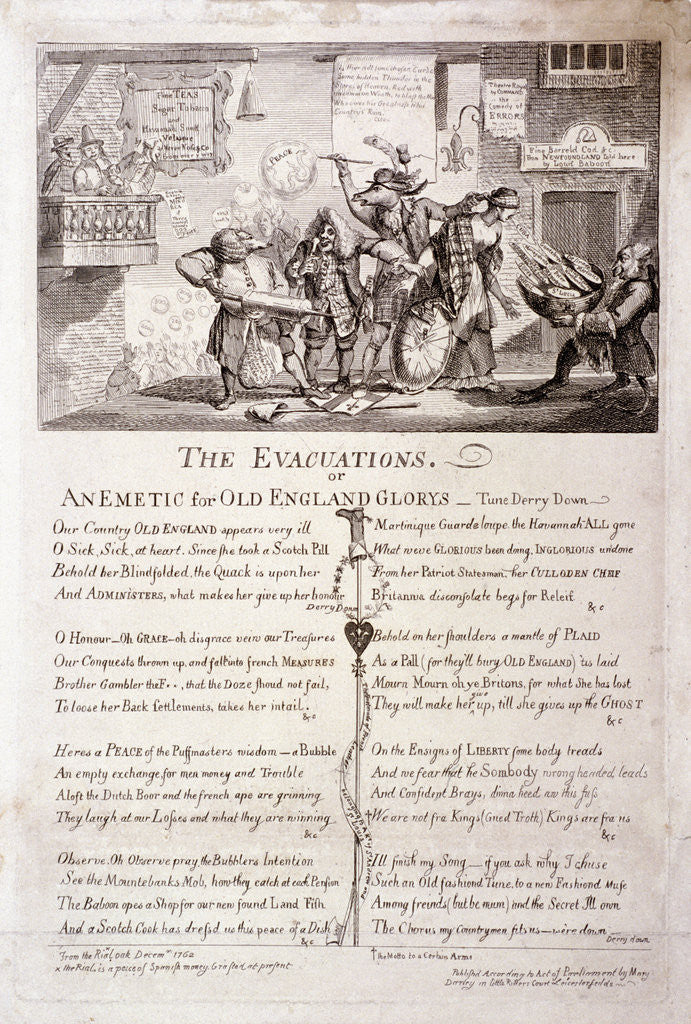 Fine TEAS
Sugar Tobacco
and
Havannah Snuff
PEACE
some hidden Thunder in the
Stores of Heaven, Red with
uncommon Wrath, to blast the Man
Who owes his Greatness to his
Country's Ruin.
Cato
Theatre Royal
by COMMAND
the
Comedy of
ERRORS
Fine Barreld Cod &c.
from NEWFOUNDLAND Sold here
by Louis Baboon
St Lucia
THE EVACUATIONS.
or
AN EMETIC for OLD ENGLAND GLORYS _ Tune Derry Down
Our Country OLD ENGLAND appears very ill
O Sick, Sick, at heart. Since she took a Scotch Pill
Behold her Blindfolded, the Quack is upon her
And ADMINISTERS, what makes her give up her honour
Derry Down
O Honour _ Oh GRACE _ oh disgrace veiw our Treasures
Our Conquests thrown up, and fall'n into french MEASURES
Brother Gambler the F . . , that the Doze shoud not fail,
To loose her Back settlements, takes her in tail.
&c
Heres a PEACE of the Puffmasters wisdom _ a Bubble
An empty exchange, for men money and Trouble
Aloft the Dutch Boor and the french ape are grinning
They laugh at our Losses and what they, are winning
&c
Observe. Oh Observe pray the Bubblers Intention
See the Mountebanks Mob, how they catch at each Pension
The Baboon opes a Shop for our new found Land Fish
And a Scotch Cook has dress'd us this peace of a Dish
&c
Martinique Guardeloupe the Havannah ALL gone
What weve GLORIOUS been doing, INGLORIOUS undone
From her Patriot Statesman, her CULLODEN CHEIF
Britannia disconsolate begs for Releif
&c
Behold on her shoulders a mantle of PLAID
As a Pall (for they'll bury OLD ENGLAND) 'tis laid
Mourn Mourn oh ye Britons, for what She has lost
They will make her give up, till she gives up the GHOST
&c
On the Ensigns of LIBERTY some body treads
And we fear that he Sombody wrong headed leads
And Confident Brays, dinna heed aw this fuss
†We are not fra Kings (Gued Troth) Kings are fra us
&c
Ill finish my Song _ if you ask why I chuse
Such an Old fashiond Tune, to a new Fashiond Muse
Among freinds (but be mum) and the Secret Ill own
The Chorus my Countrymen fits us _ we're down
Derry down
From the Rial, oak Decemr. 1762
x the Rial, is a peice of Spanish money. Grafted at present
† the Motto to a Certain Arms
Publish'd According to Act of Parliament by Mary
Darley in little Riders Court Leicesterfeilds